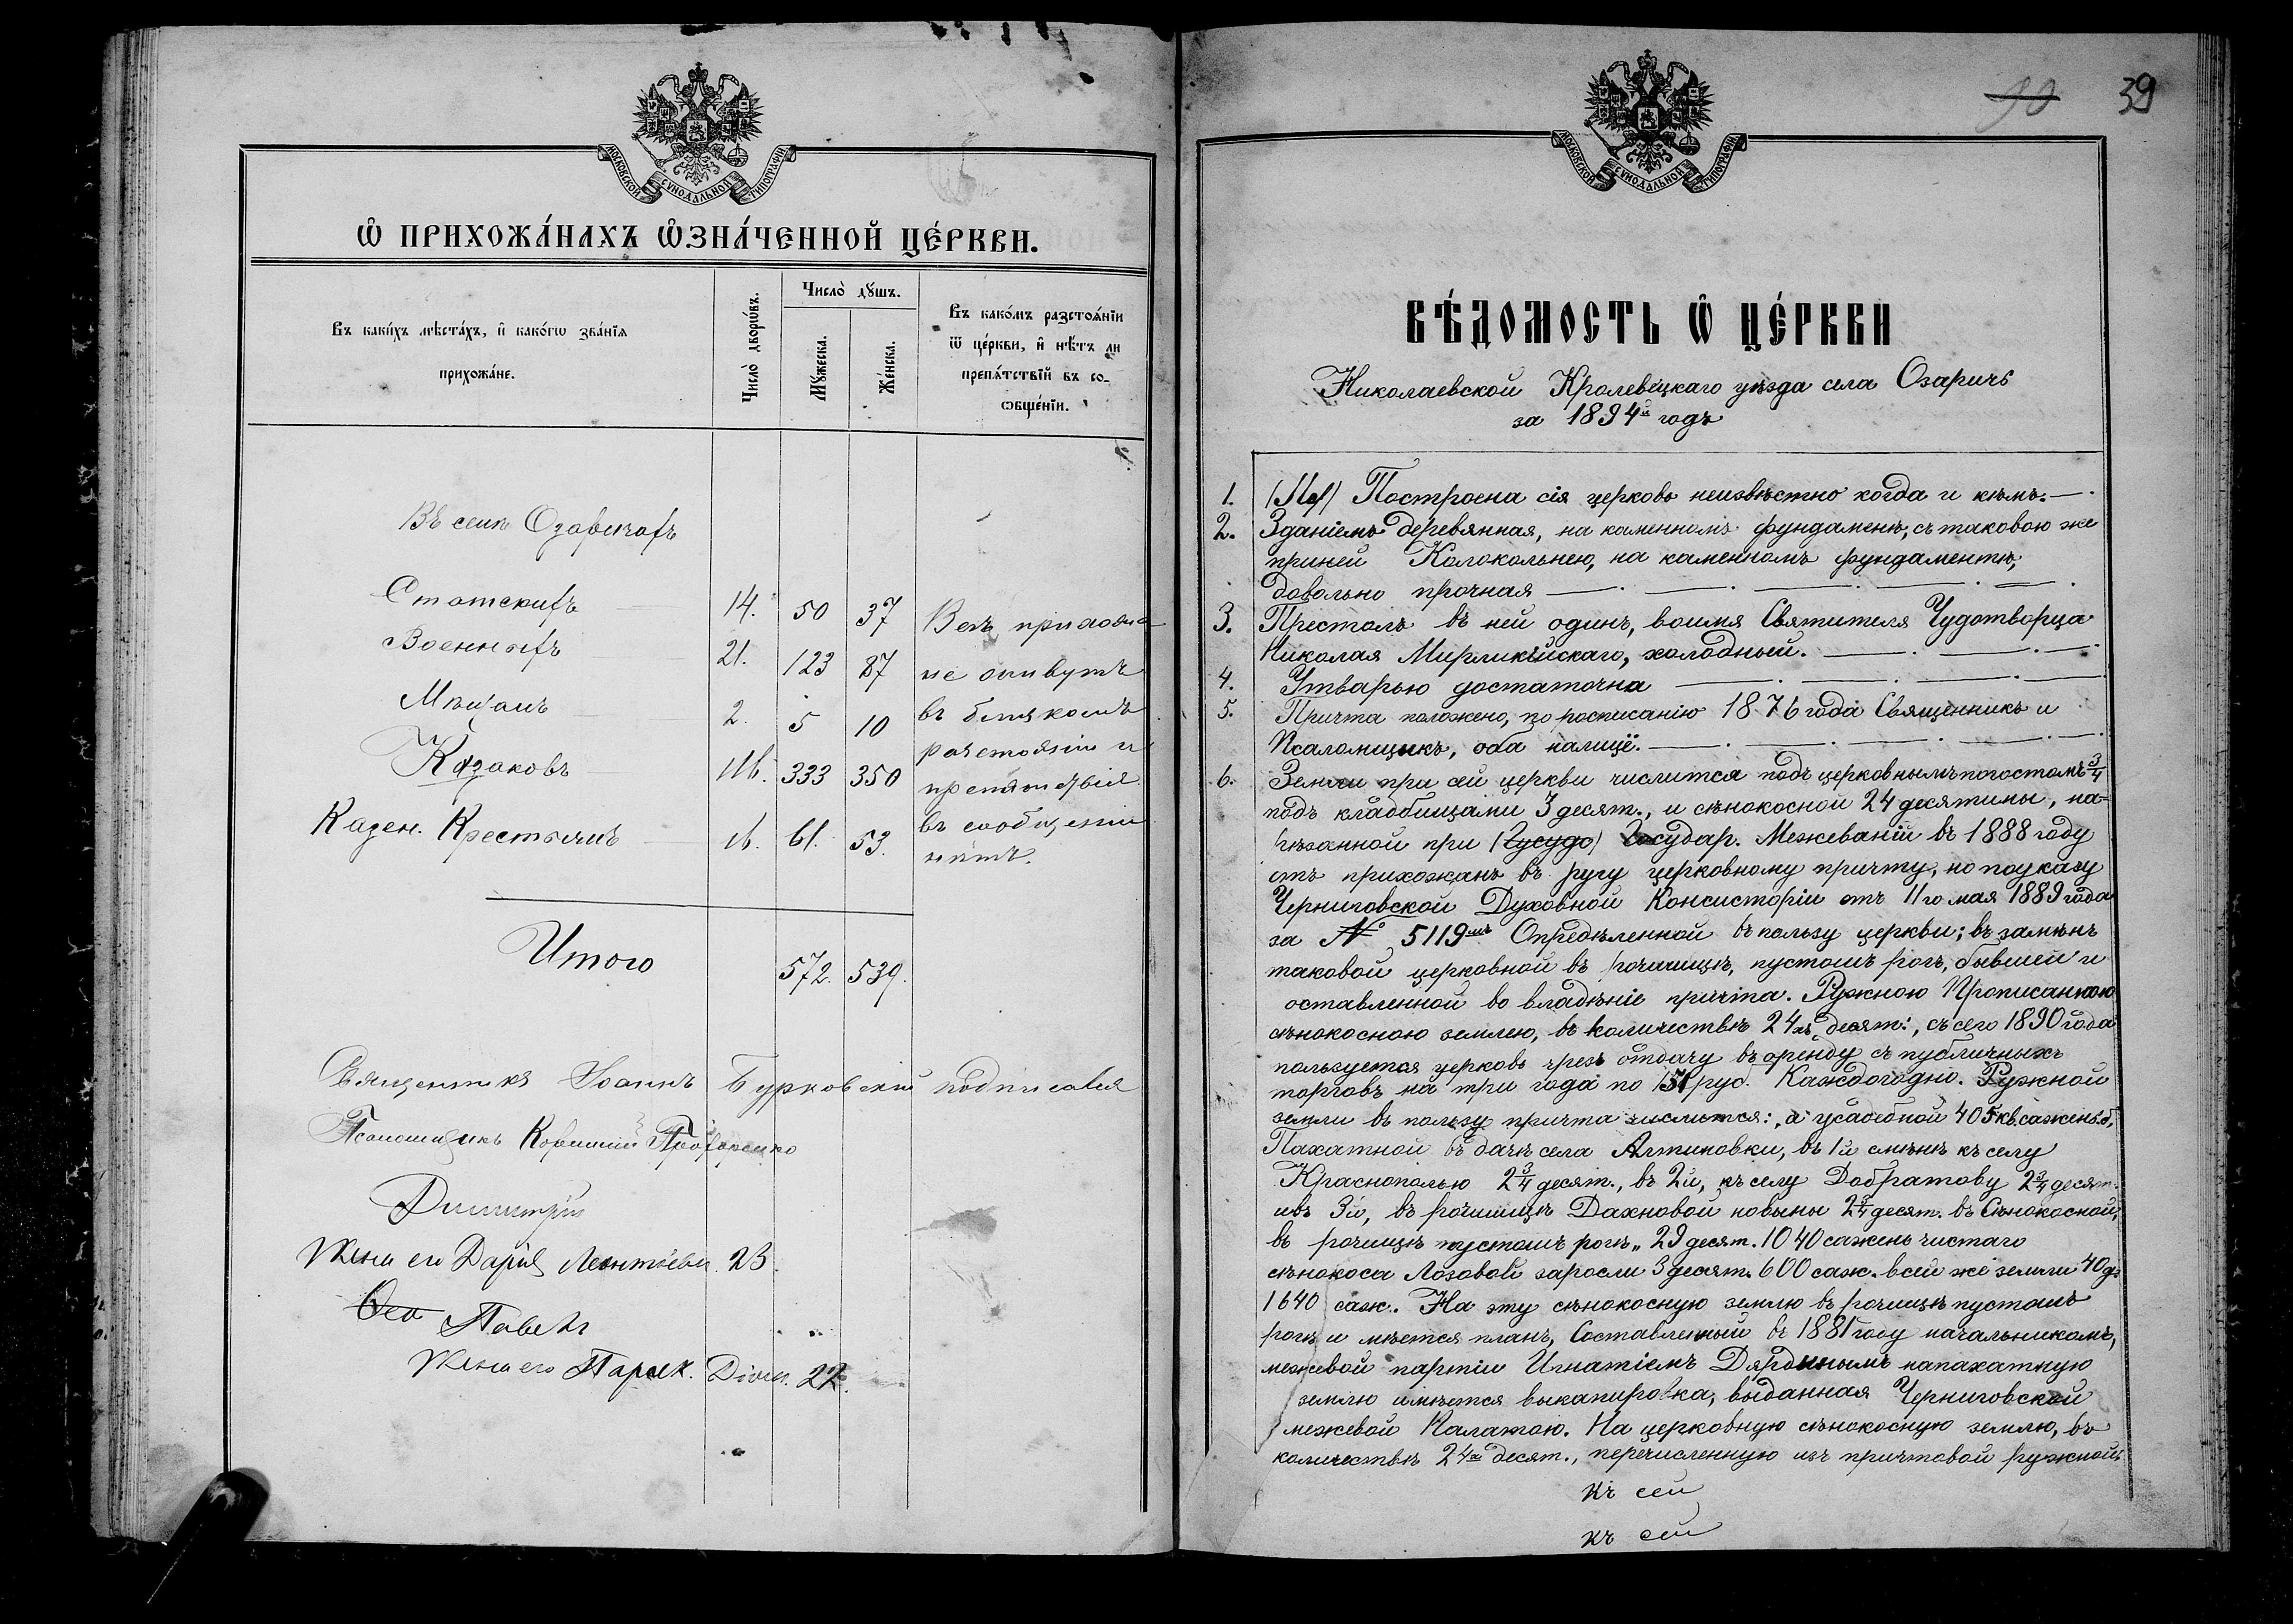 МОСКОВСКОЙ СѴНОДАЛЬНОЙ ТИПОГРАФІИ
Ѡ ПРИХОЖА́НАХЪ ѠЗНА́ЧЕННОЙ ЦЕ́РКВИ.
Въ каки́хъ мѣста́хъ, и҆ како́гѡ зва́нїѧ прихожа́не.
Число̀ дворѡ́въ.
Число̀ дꙋ́шъ.
Мꙋ́жеска.
Же́нска.
Въ како́мъ разстоѧ́нїи
ѿ це́ркви, и҆ нѣ́тъ ли
препѧ́тствїй въ со-
ѻбще́нїи.
Въ селѣ Озаричахъ
Статскихъ 14. 50 37
Военныхъ 21. 123 87
Мѣщанъ 2. 5 10
Казаковъ 116. 333 350
Казен. Крестьянъ 16. 61. 53.
не живутъ
въ близкомъ
разстояніи и
препятствія
въ сообщеніи
нѣтъ.
Итого 572. 539.
Священникъ Іоаннъ Бурковскій подписался
Псаломщикъ
Димитрій
Жена его Дарія Леонтіева. 23.
Павелъ
Жена его Параск. 22.
39
МОСКОВСКОЙ СѴНОДАЛЬНОЙ ТИПОГРАФІИ
ВѢ́ДОМОСТЬ Ѡ ЦЕ́РКВИ
Николаевской Кролевецкаго уѣзда села Озаричъ
за 1894й годъ
1. Построена сія церковь неизвѣстно когда и кѣмъ. —.
2. Зданіемъ деревянная, на каменномъ фундаменѣ, съ таковою же
приней Колокольнею, на каменномъ фундаментѣ,
довольно прочная
3. Престолъ въ ней одинъ, воимя Святителя Чудотворца
Николая Мирликійскаго, холодный.
4. Утварью достаточна
5. Причта положено, по росписанію 1876 года Священникъ и
Псаломщикъ, оба налицѣ.
6. Земли при сей церкви числится подъ церковнымъ погостомъ 3/4
подъ кладбищами 3 десят., и сѣнокосной 24 десятины, на-
рѣзанной при Государ. Межеваніи въ 1888 году
отъ прихожанъ въ ругу церковному причту, но поуказу
Черниговской Духовной Консисторіи отъ 11го мая 1889 года
за № 5119мъ Опредѣленной въ пользу церкви; въ замѣнъ
таковой церковной въ рочищѣ, пустомъ рогъ, бывшей и
оставленной во владѣніе причта. Ружною Прописанною
сѣнокосною землею, въ количествѣ 24хъ десят., съ сего 1890 года
пользуется церковь чрезъ отдачу въ оренду съ публичныхъ
торговъ на три года по 151 руб. Каждогодно. Ружной
земли въ пользу причта числится: а усадебной 405 кв. сажень. б,
Пахатной въ дачѣ села Алтиновки, въ 1й смѣнѣ къ селу
Краснополью 2 3/4 десят., въ 2й, къ селу Добратову 2 3/4 десят.
ивъ 3й, въ рочищѣ Дахновой новыны 2 3/4 десят. въ Сѣнокосной,
въ рочищѣ пустомъ рогѣ„ 29 десят. 1040 сажень чистаго
сѣнокоса Лозовой заросли 3 десят. 600 саж. всей же земли 40 д.
1640 саж. На эту сѣнокосную землю въ рочищѣ пустомъ
рогѣ и мѣется планъ, Составленный въ 1881 году начальникомъ,
межевой партіи Игнатіемъ напахатную
землю имѣется выкапировка, выданная Черниговской
межевой Палатою. На церковную сѣнокосную землю, въ
количествѣ 24хъ десят., перечисленную изъ причтовой ружной
къ сей
къ сей